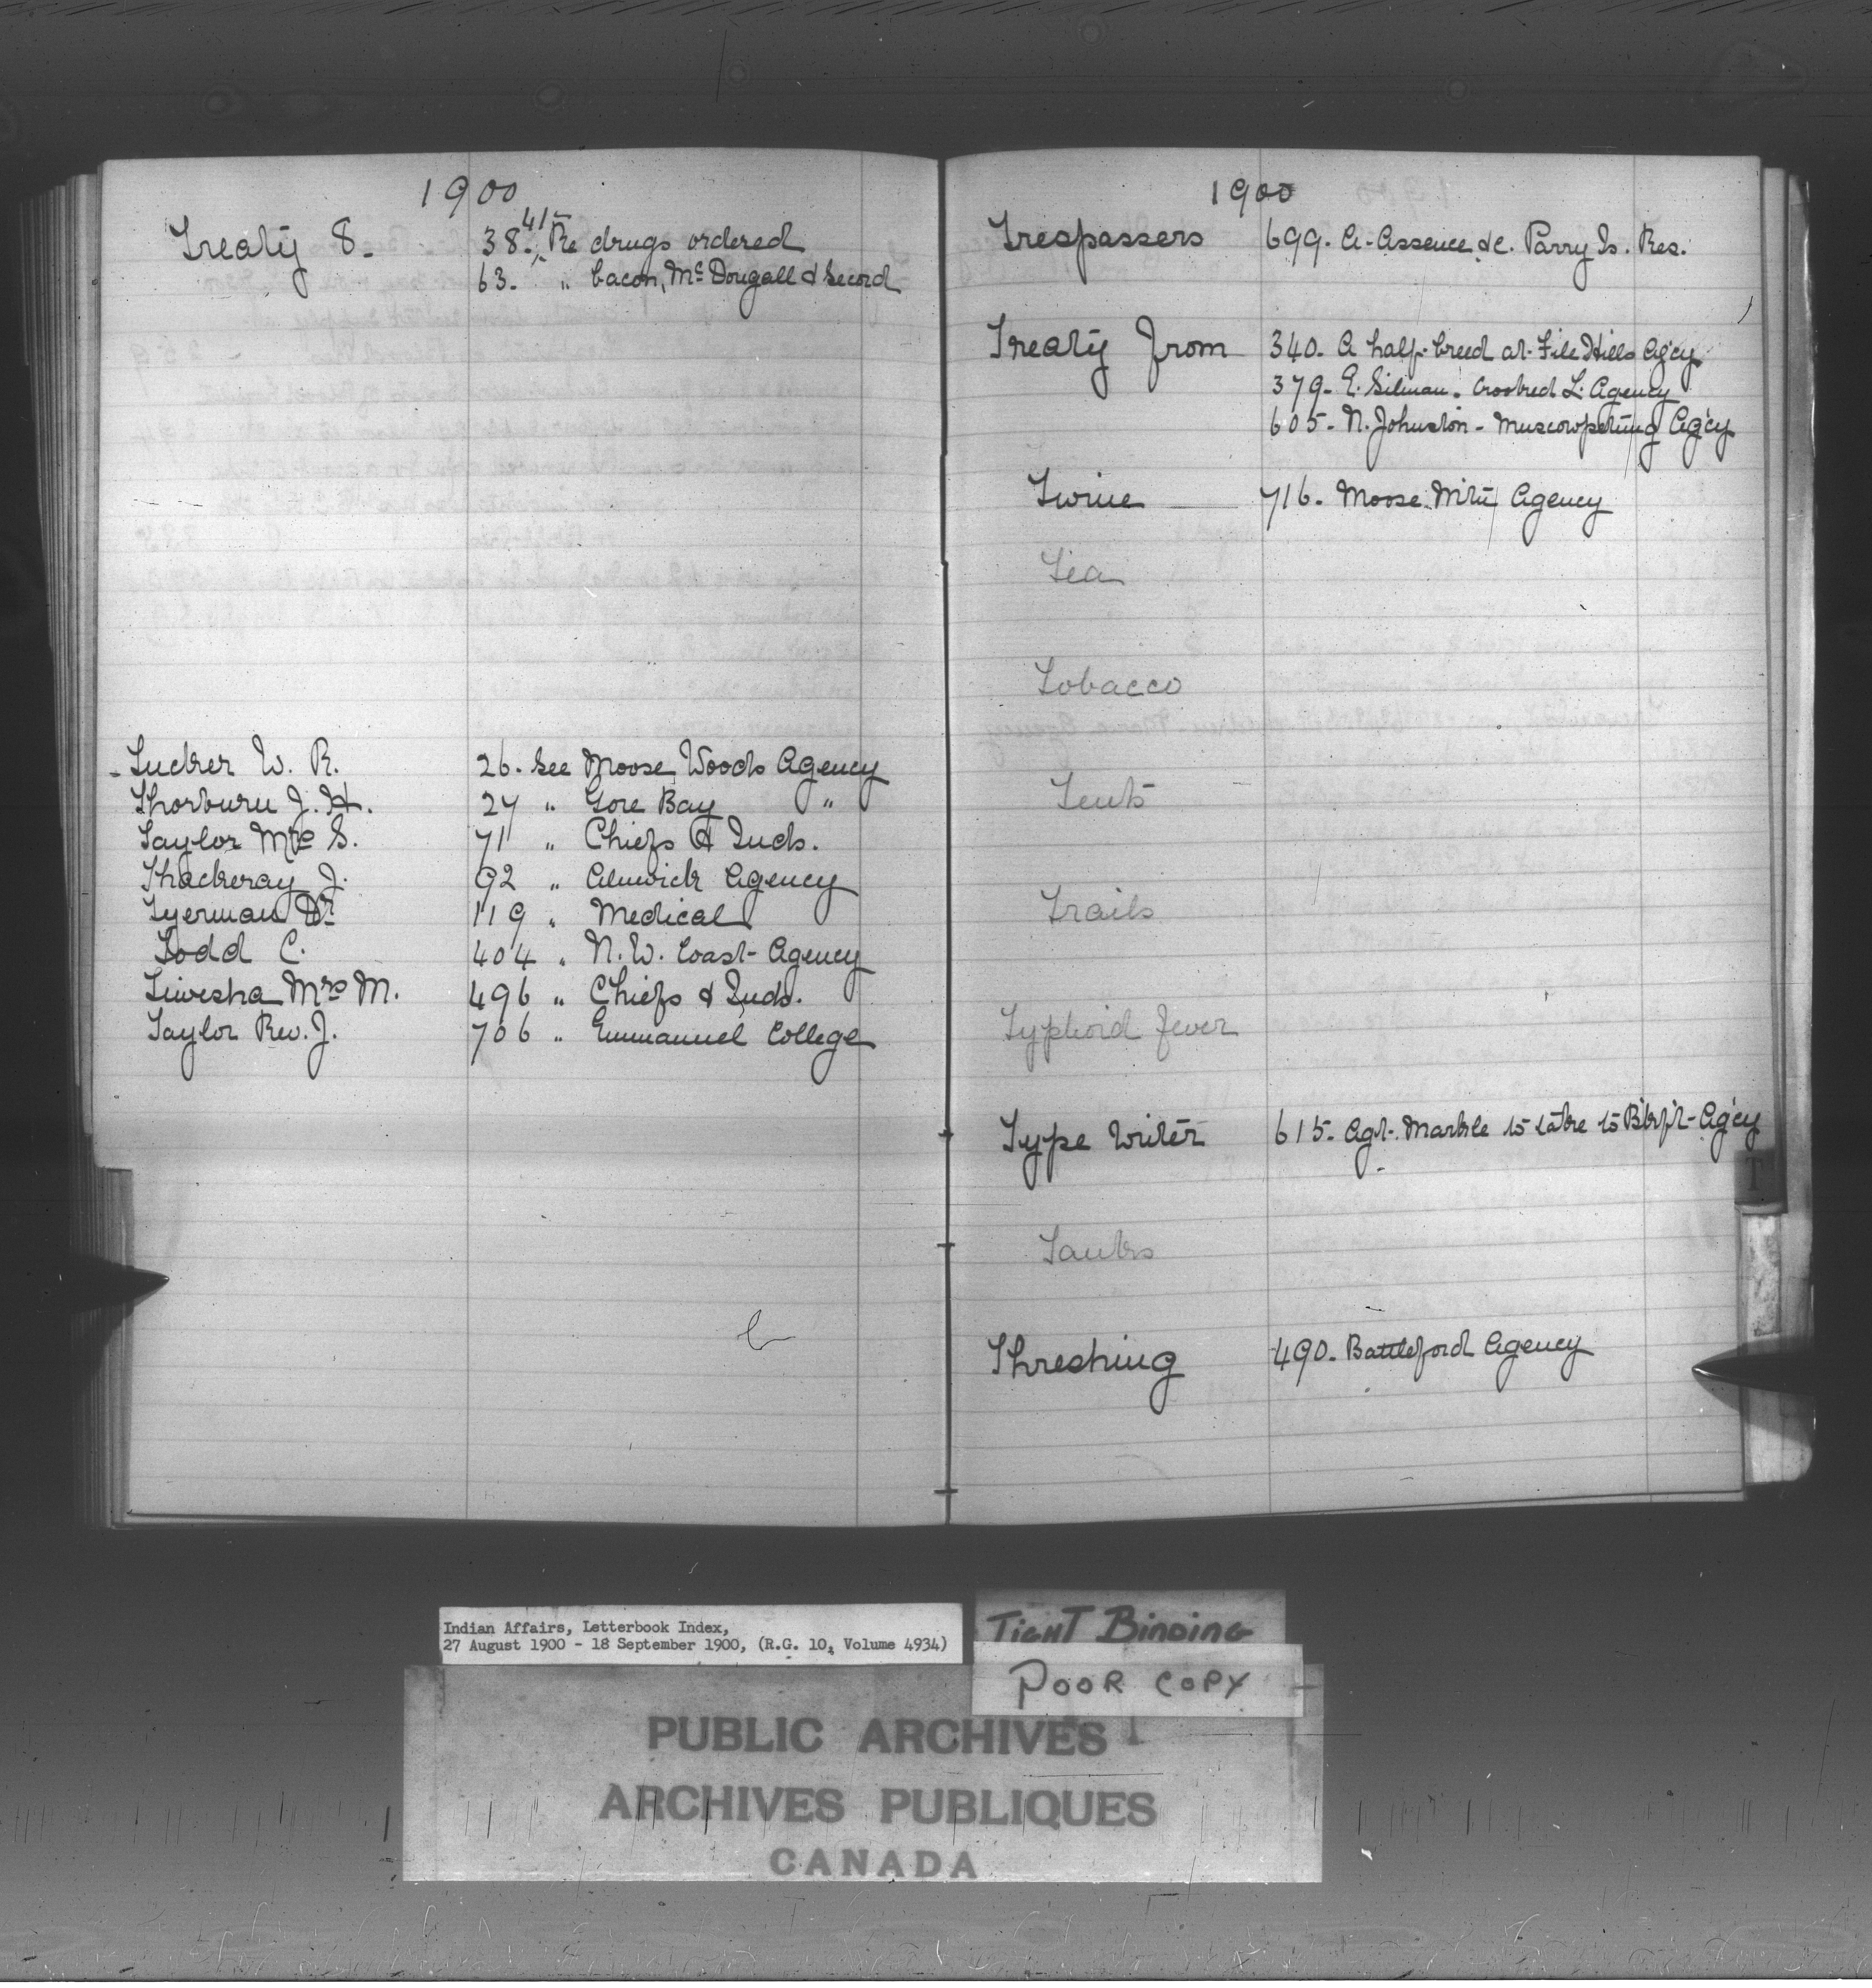 1900
Treaty 8. 38. 41 Re drugs ordered
63. " bacon, McDougall & Secord
Tucker W. R. 26. See Moose Woods Agency
Thorburn J. H. 27 " Gore Bay "
Taylor Mrs S. 71 " Chiefs & Inds.
Thackeray J. 92 " Alnwick Agency
Tyerman Dr 119 " Medical
Todd C. 404 " N. W. Coast Agency
Mrs M. 496 " Chiefs & Inds.
Taylor Rev. J. 706 " Emmanuel College
1900
Trespassers 699. A. Assence &c. Parry Is. Res.
Treaty from 340. A half-breed at File Hills Ag'cy
379. E. Crooked L. Agency
605. N. Johnston - Muscowpetung Ag'cy
Twine 716. Moose Mtn Agency
Tea
Tobacco
Tents
Trails
Typhoid fever
Type Writer 615. Agt. Markle to take to Blkft Ag'cy
Tanks
Threshing 490. Battleford Agency
T
Indian Affairs, Letterbook Index,
27 August 1900 - 18 September 1900, (R.G. 10, Volume 4934)
TIGHT BINDING
POOR COPY
PUBLIC ARCHIVES
ARCHIVES PUBLIQUES
CANADA